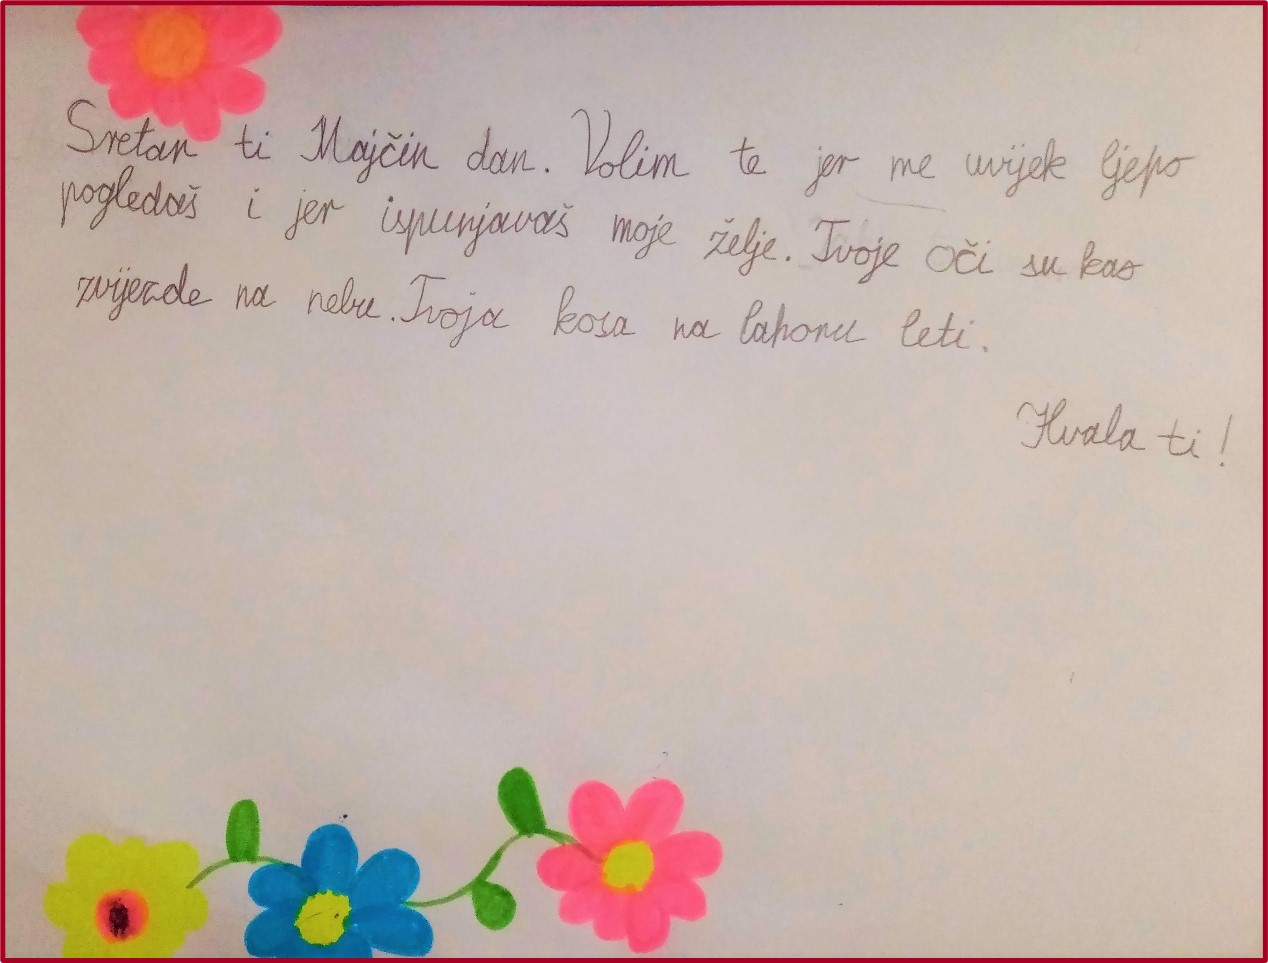 Sretan ti Majčin dan. Volim te jer me uvijek ljepo
pogledaš i jer ispunjavaš moje želje. Tvoje oči su kao
zvijezde na nebu. Tvoja kosa na lahoru leti.
Hvala ti!